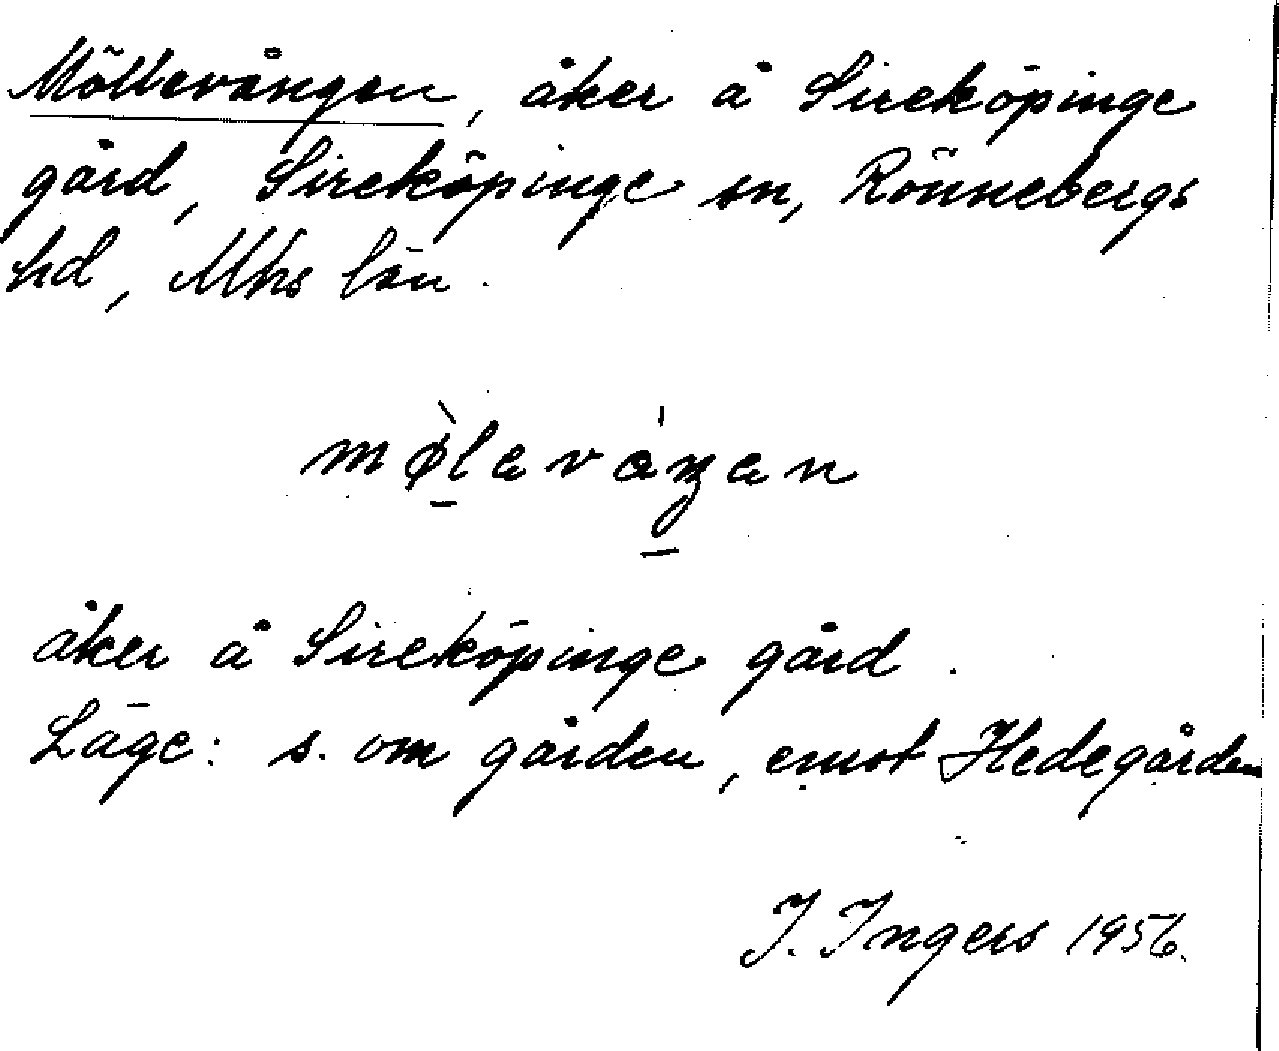 Möllevången, åker å Sireköpinge
gård, Sireköpinge sn, Rönnebergs
hd, Mhs län.
åker å Sireköpinge gård.
Läge: s. om gården, emot Hedegården
I. Ingers 1956.